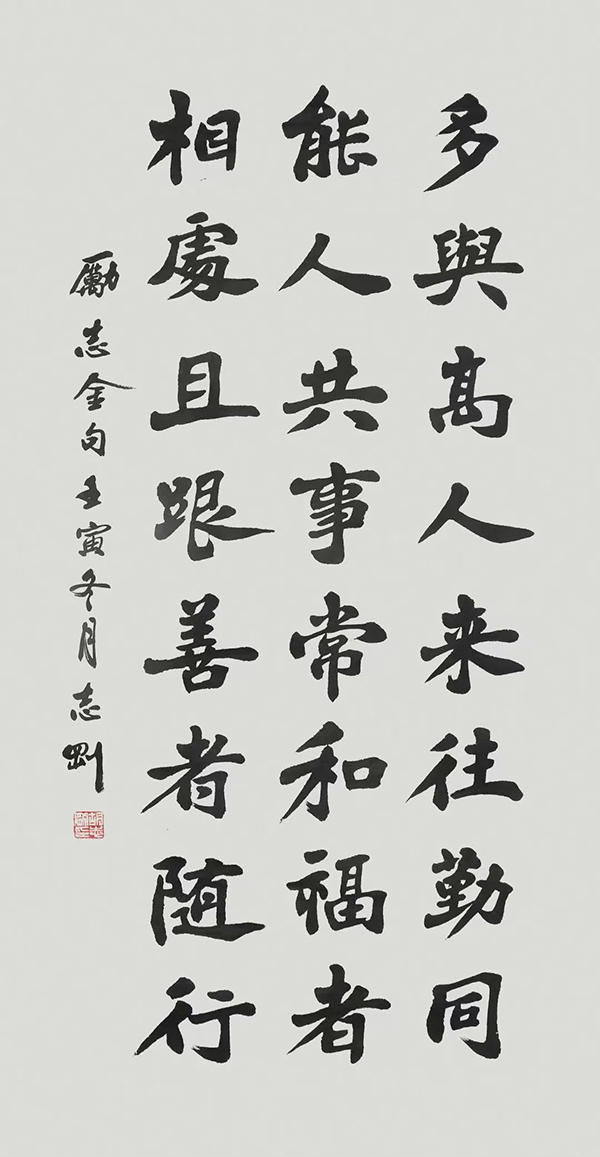 多與高人来往勤同
能人共事常和福者
相處且跟善者随行
勵志金句壬寅冬月志剛